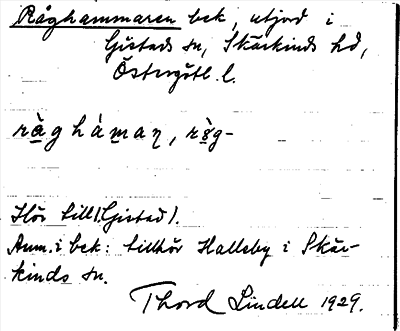 Råghammaren bek, utjord i
Gistads sn, Skärkinds hd,
Östergötl. l.
rå̀g hàmaṇ, rò̤g-
Hör till (Gistad).
Anm. i bek: tillhör Halleby i Skär-
kinds sn.
Thord Lindell 1929.